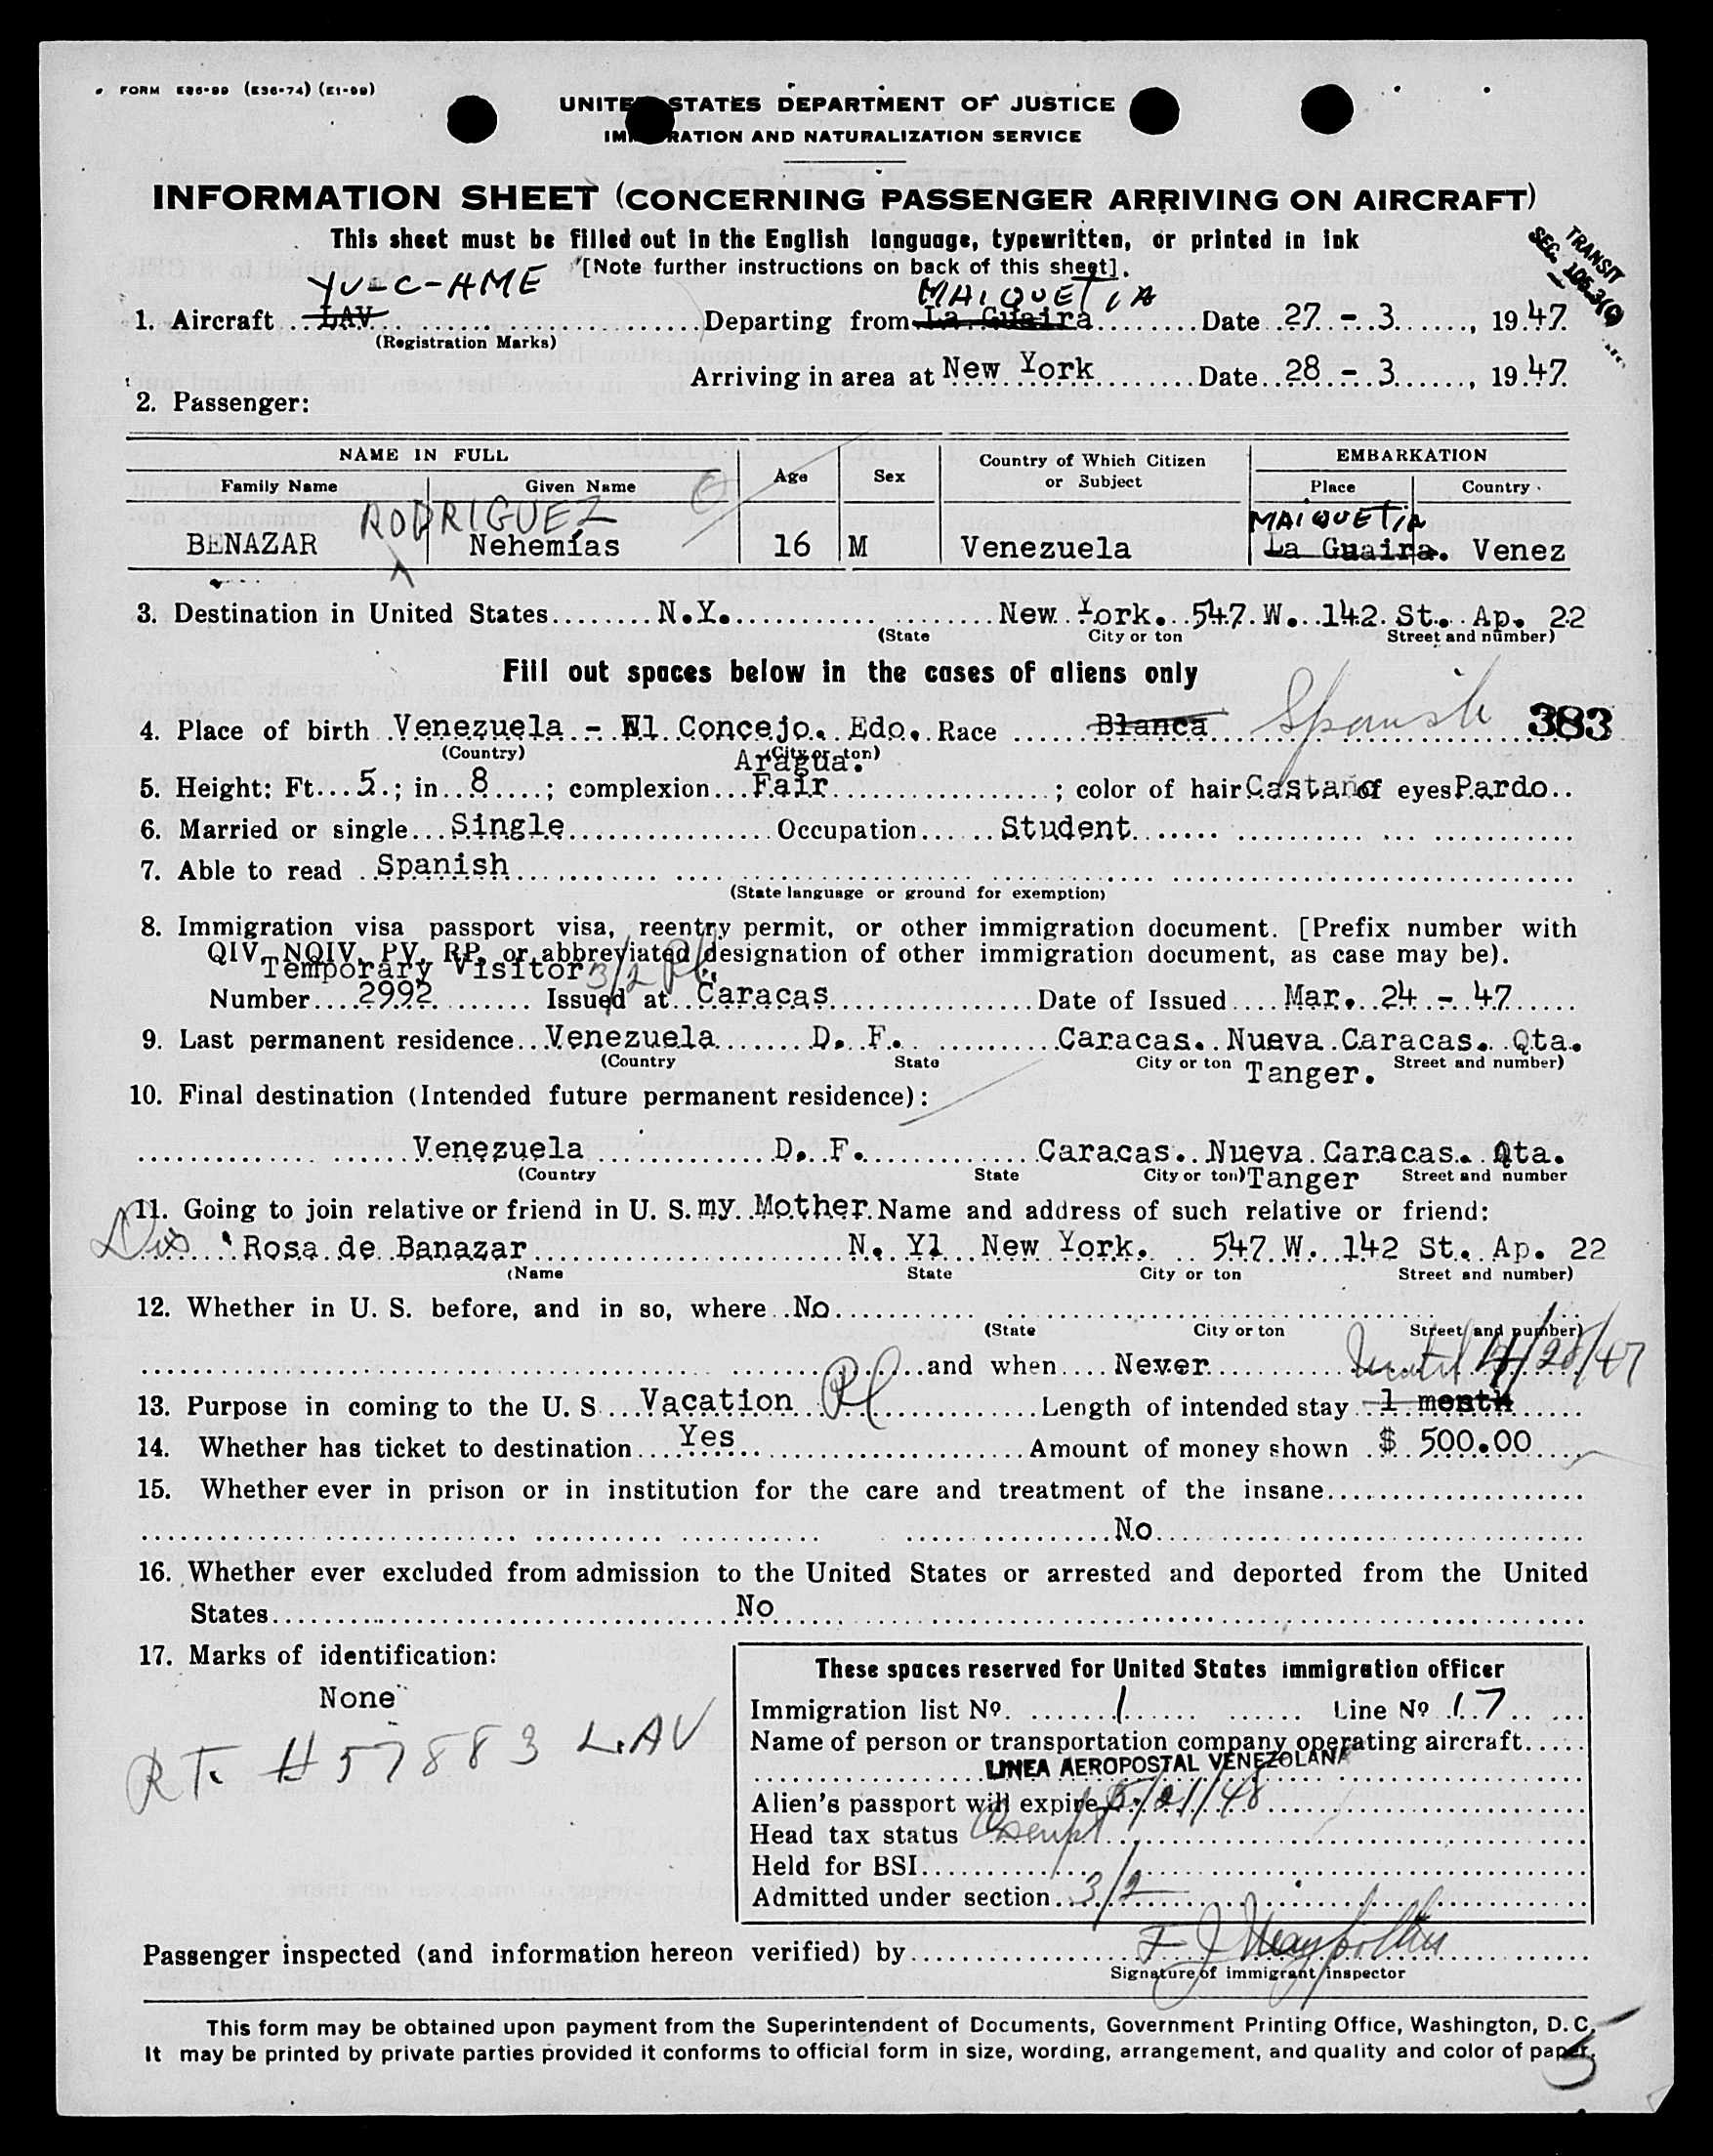 FORM E36-99 (E36-74) (E1-99)
UNITED STATES DEPARTMENT OF JUSTICE
IMMIGRATION AND NATURALIZATION SERVICE
INFORMATION SHEET (CONCERNING PASSENGER ARRIVING ON AIRCRAFT)
This sheet must be filled out in the English language, typewritten, or printed in ink
[Note further instructions on back of this sheet].
TRANSIT
SEC. 105.3(
YV-C-AME MAIQUETIA
1. Aircraft LAV Departing from La Guaira Date 27 - 3, 1947.
(Registration Marks)
Arriving in area at New York Date 28 - 3, 1947.
2. Passenger:
NAME IN FULL Age Sex Country of Which Citizen or Subject EMBARKATION
Family Name Given Name Place Country
RODRIGUEZ MAIQUETIA
BENAZAR Nehemías 16 M Venezuela La Guaira. Venez
3. Destination in United States N.Y. New York. 547 W. 142 St. Ap. 22
(State City or ton Street and number)
Fill out spaces below in the cases of aliens only
4. Place of birth Venezuela - El Concejo. Edo. Race Blanca Spanish 383
(Country) (City or ton)
Aragua.
5. Height: Ft. 5.; in. 8; complexion Fair; color of hair Castaño of eyes Pardo
6. Married or single Single Occupation Student
7. Able to read Spanish
(State language or ground for exemption)
8. Immigration visa passport visa, reentry permit, or other immigration document. [Prefix number with
QIV, NQIV, PV, RP, or abbreviated designation of other immigration document, as case may be).
Temporary Visitor 3/2
Number 2992 Issued at Caracas Date of Issued Mar. 24 - 47
9. Last permanent residence Venezuela D. F. Caracas. Nueva Caracas. Qta.
(Country State City or ton Street and number)
Tanger.
10. Final destination (Intended future permanent residence):
Venezuela D. F. Caracas. Nueva Caracas. Qta.
(Country State City or ton) Tanger Street and number
11. Going to join relative or friend in U. S. my Mother Name and address of such relative or friend:
Rosa de Banazar N. Yl New York. 547 W. 142 St. Ap. 22
(Name State City or ton Street and number)
12. Whether in U. S. before, and in so, where No
(State City or ton Street and number)
and when Never until 4/28/47
13. Purpose in coming to the U. S. Vacation Length of intended stay 1 month
14. Whether has ticket to destination Yes Amount of money shown $ 500.00
15. Whether ever in prison or in institution for the care and treatment of the insane
No
16. Whether ever excluded from admission to the United States or arrested and deported from the United
States No
17. Marks of identification:
None
RT. #57883 LAV
These spaces reserved for United States immigration officer
Immigration list Nº. 1 Line Nº 17
Name of person or transportation company operating aircraft
LINEA AEROPOSTAL VENEZOLANA
Alien's passport will expire 5/21/48
Head tax status Exempt
Held for BSI
Admitted under section 3/2
Passenger inspected (and information hereon verified) by
Signature of immigrant inspector
This form may be obtained upon payment from the Superintendent of Documents, Government Printing Office, Washington, D. C.
It may be printed by private parties provided it conforms to official form in size, wording, arrangement, and quality and color of paper.